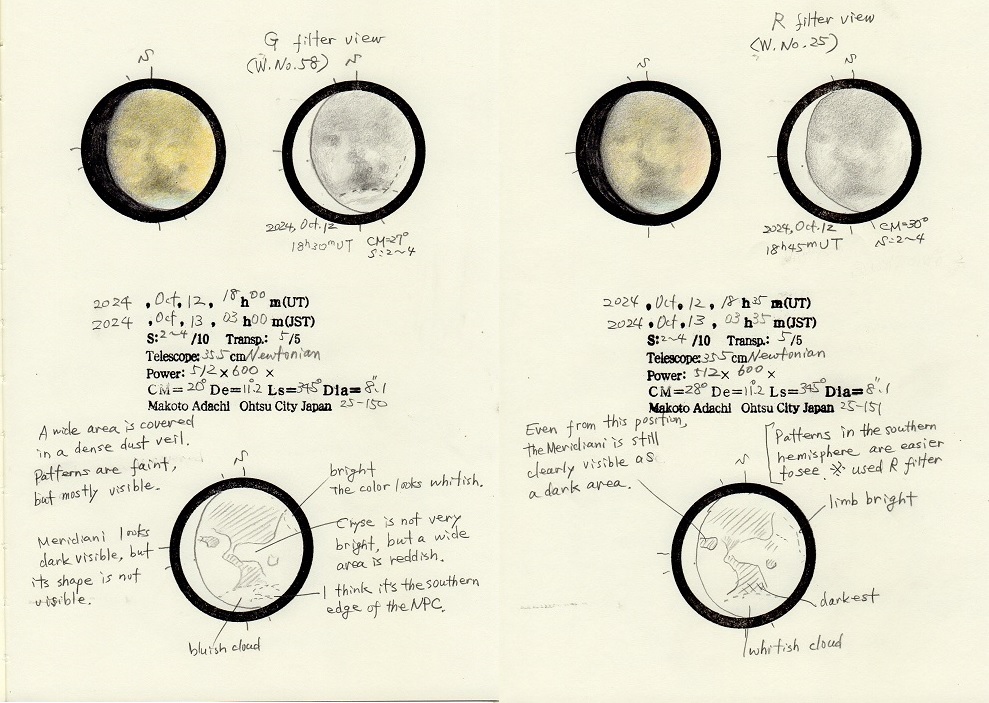 G filter view
(W. No. 58)
N
N
2024, Oct. 12
18h30mUT
CM=27°
S: 2~4
2024 , Oct, 12, 18 h 00 m(UT)
2024 , Oct, 13 , 03 h 00 m(JST)
S: 2~4 /10 Transp.: 5/5
Telescope: 355 cm Newtonian
Power: 512 × 600 ×
CM= 20° De= 11.2 Ls= 345° Dia= 8".1
Makoto Adachi Ohtsu City Japan 25-150
A wide area is covered
in a dense dust veil.
Patterns are faint,
but mostly visible.
N
bright
The color looks whitish.
Cryse is not very
bright, but a wide
area is reddish.
Meridiani looks
dark visible, but
its shape is not
visible.
I think it's the southern
edge of the NPC.
bluish cloud
R filter view
(W. No. 25)
N
N
2024, Oct. 12
18h45mUT
CM=30°
S: 2~4
2024 , Oct, 12, 18 h 35 m(UT)
2024 , Oct, 13 , 03 h 35 m(JST)
S: 2~4 /10 Transp.: 5/5
Telescope: 355 cm Newtonian
Power: 512 × 600 ×
CM= 28° De= 11.2 Ls= 345° Dia= 8".1
Makoto Adachi Ohtsu City Japan 25-151
Even from this position,
the Meridiani is still
clearly visible as
a dark area.
Patterns in the southern
hemisphere are easier
to see. ※ used R filter
N
limb bright
darkest
whitish cloud